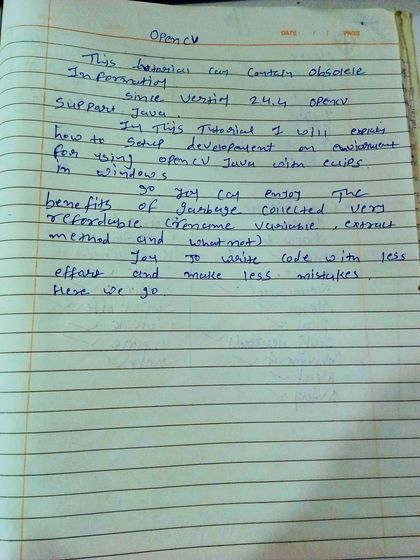 OpenCV
DATE: / / PAGE
This tutorial can contain obsolete
Information
since version 24.4 opencv
support Java.
In This Tutorial I will explain
how to setup development on enviorment
for using opencv Java with eclips
in windows
so you can enjoy The
benefits of garbage collected very
refordable (rename variable, extract
method and what not)
you to write code with less
effort and make less mistakes.
Here we go.